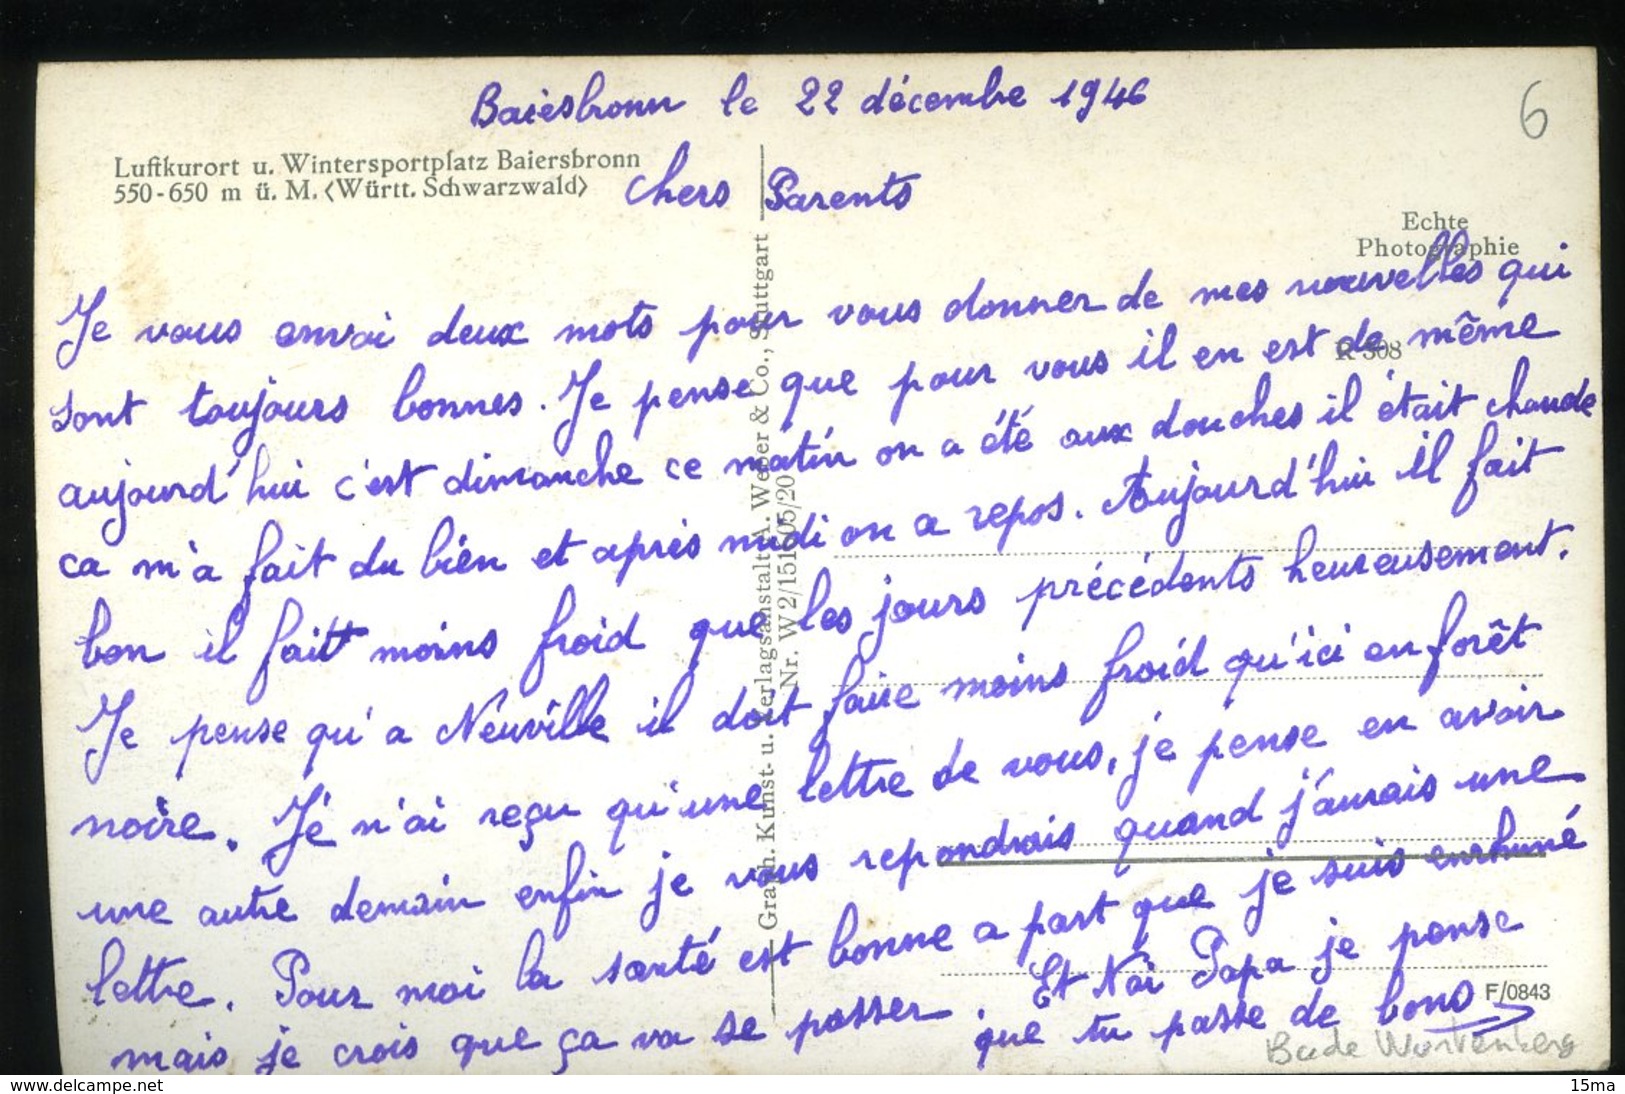 Baiesbronn le 22 décembre 1946
6
Luftkurort u. Wintersportplatz Baiersbronn
550-650 m ü. M. <Württ. Schwarzwald>
chers Parents
Echte
Photographie
R 308
Je vous envoi deux mots pour vous donner de mes nouvelles qui
sont toujours bonnes. Je pense que pour vous il en est de même
aujourd'hui c'est dimanche ce matin on a été aux douches il était chaude
ca m'a fait du bien et après midi on a repos. Aujourd'hui il fait
bon il fait moins froid que les jours précédents heureusement.
Je pense qu'a Neuville il doit faire moins froid qu'ici en forêt
noire. Je n'ai reçu qu'une lettre de vous, je pense en avoir
une autre demain enfin je vous repondrais quand j'aurais une
lettre. Pour moi la santé est bonne a part que je suis enrhumé
mais je crois que ça va se passer. Et toi Papa je pense
que tu passe de bons
Graph. Kunst- u. Verlagsanstalt A. Weber & Co., Stuttgart
Nr. W 2/151505/20
F/0843
Bade Wurtenberg
www.delcampe.net
15ma